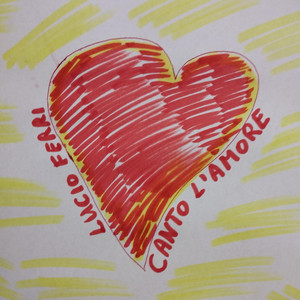 LUCIO FERRI
CANTO L'AMORE